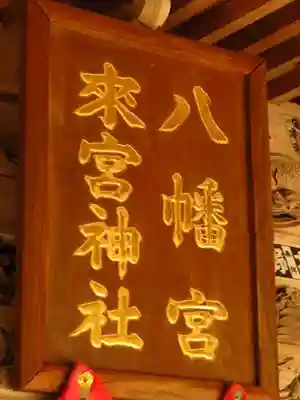 八幡宮
來宮神社